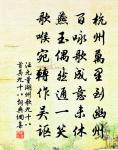 杭州萬里到幽州
百咏歌成意未休
燕玉偶然通一笑
歌喉宛轉作吴謳
汪元量湖州歌九十八
首其九十八詞典網書